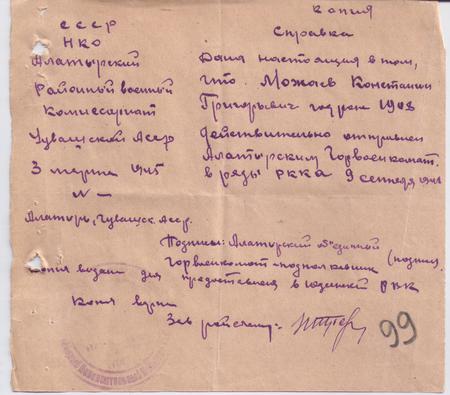 копия
СССР
НКО
Алатырский
Районный военный
Комиссариат
Чувашской Асср
3 марта 1945
№ —
Алатырь, Чувашск. Асср.
Справка
Дана настоящая в том,
что Можаев Константин
Григорьевич год рож 1908
действительно отправлен
Алатырским Горвоенкомат.
в ряды РККА 9 сентября
Подпись: Алатырский
подполковник (подпись)
Копия выдана для предоставления в
Копия верна
Зав
99